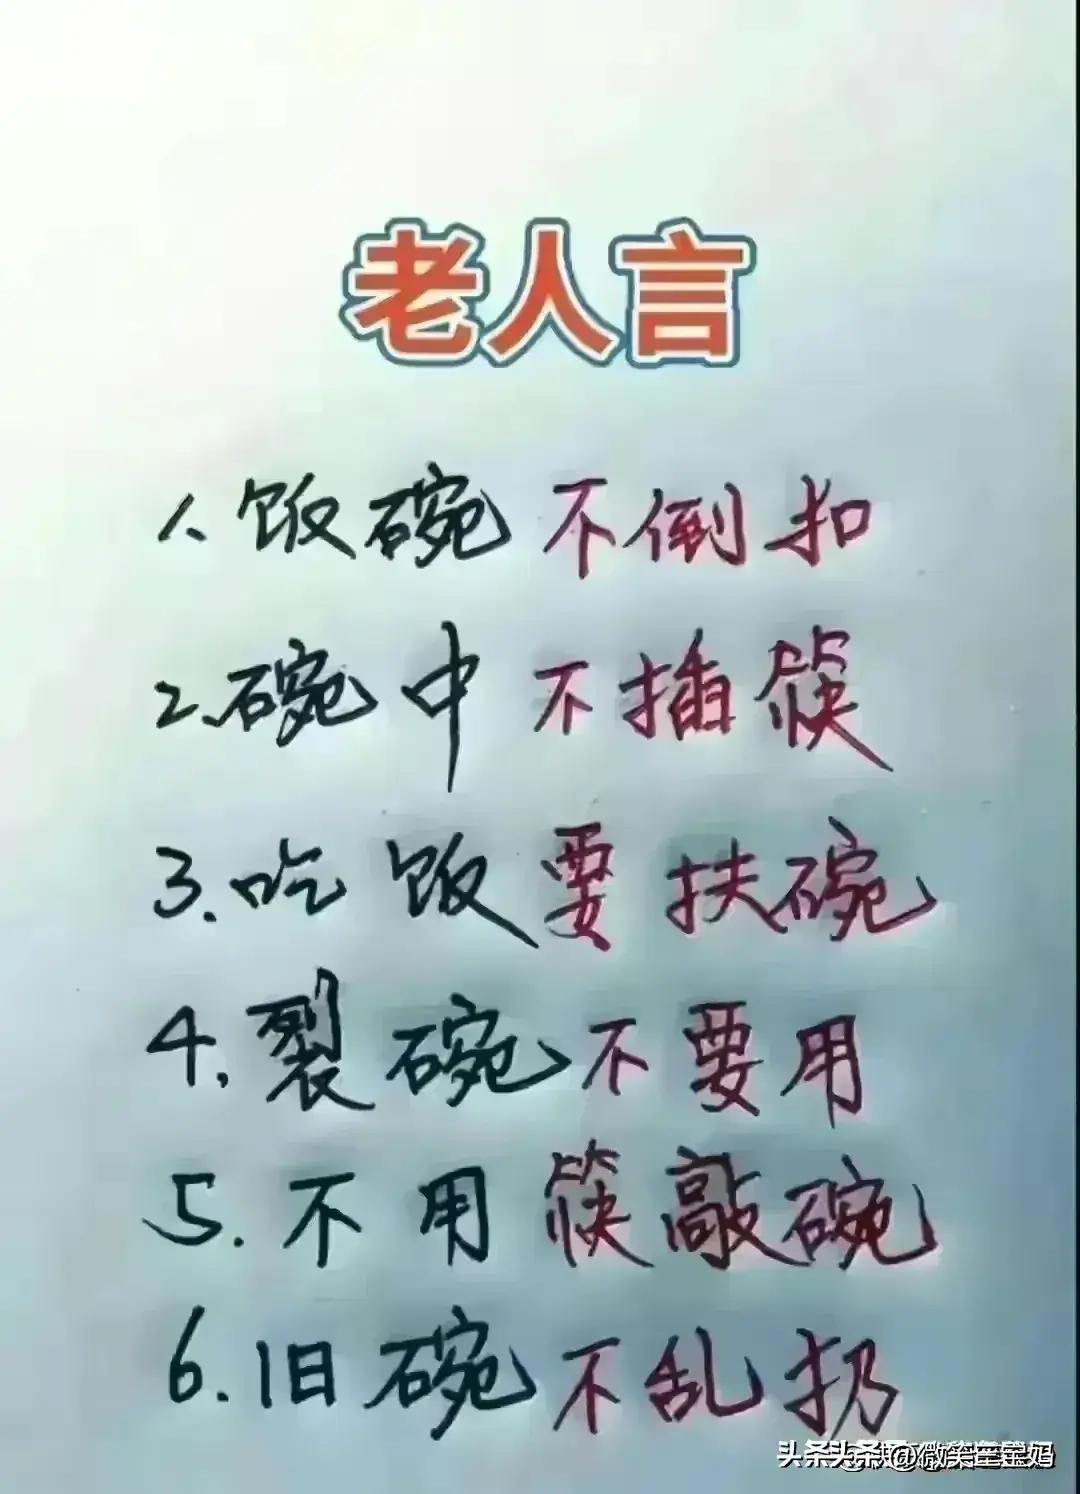 老人言
1、饭碗不倒扣
2、碗中不插筷
3.吃饭要扶碗
4.裂碗不要用
5.不用筷敲碗
6.旧碗不乱扔